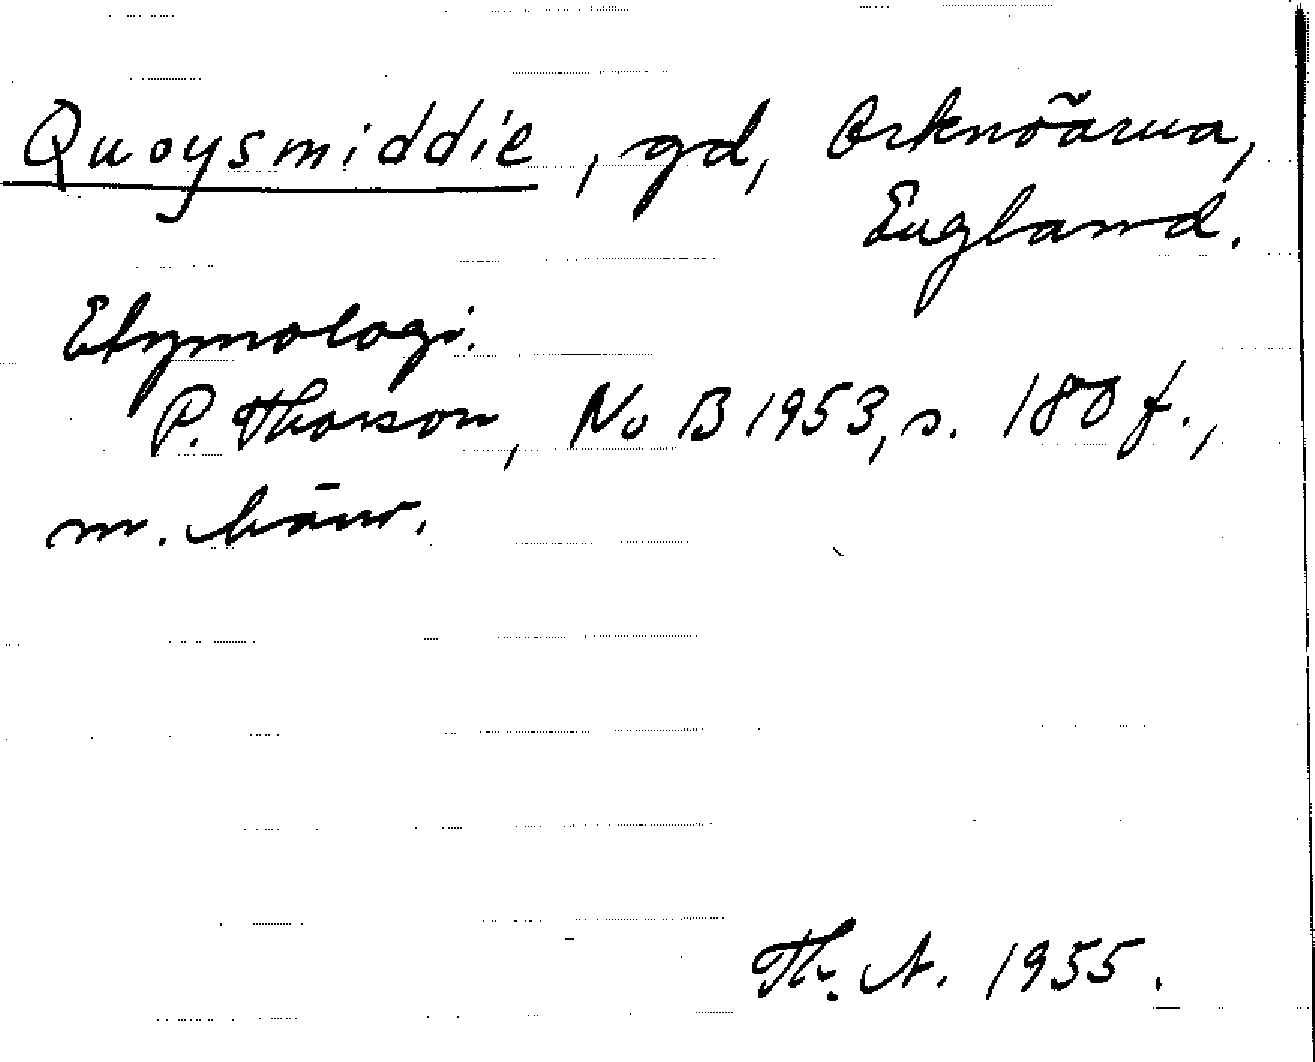 Quoysmiddie, gd, Orknöarna,
England.
Etymologi.
P. Thorson, NoB 1953, s. 180 f.,
m. hänv.
Th. A. 1955.